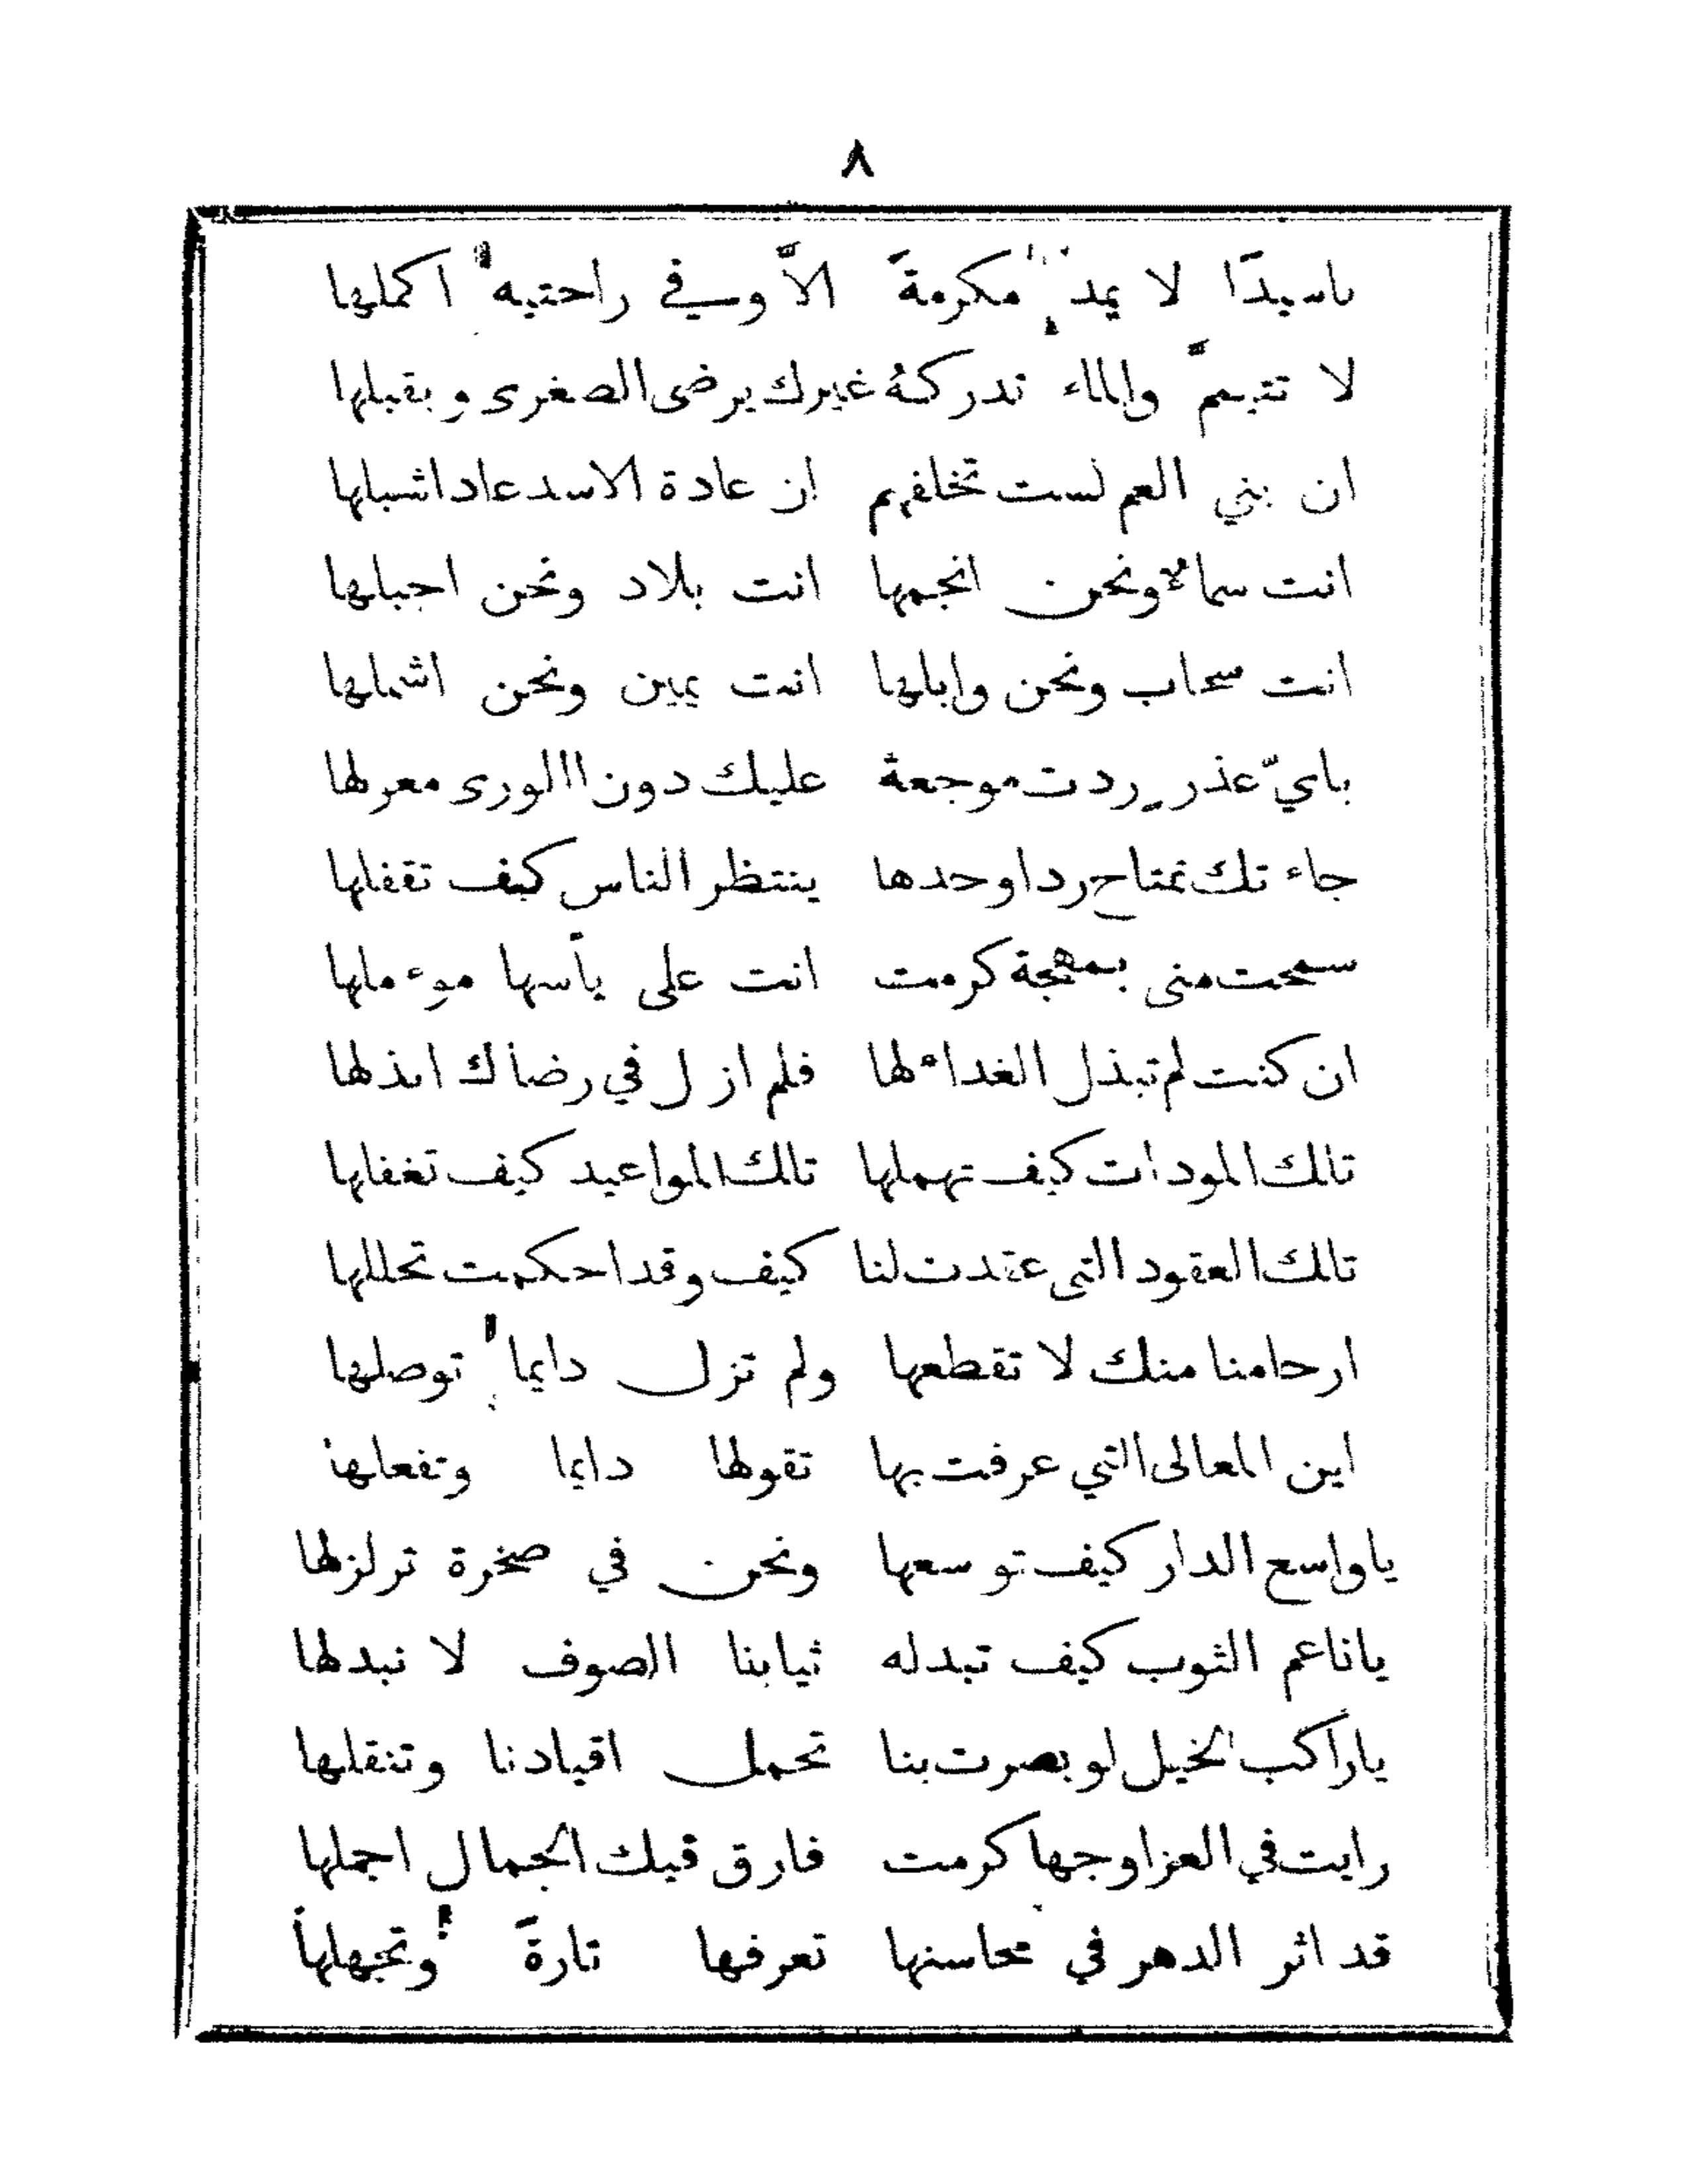 ٨
ياسيدًا لا يمد مكرمةً الاَّ وفي راحتيه اكملها
لا تتيممَّ والماء تدركهُ غيرك يرضى الصغرى ويقبلها
ان بني العم لست تخلفهم ان عادة الاسد عاد اشبلها
انت سماء ونحن انجمها انت بلاد ونحن اجبلها
انت سحاب ونحن وابلها انت يمين ونحن اشملها
بايّ عذر رددت موجعة عليك دون االورى معولها
جاء تك تمتاح رداوحدها ينتظر الناس كيف تقفلها
سمحت منى بمهجة كرمت انت على يأسها موءملها
ان كنت لم تبذل الغداء لها فلم ازل في رضاك ابذلها
تلك المودات كيف تهملها تلك المواعيد كيف تغفلها
تلك العقود التى عقدت لنا كيف وقد احكمت تحللها
ارحامنا منك لا تقطعها ولم تزل دايما توصلها
اين المعالى التي عرفت بها تقولها دايما وتفعلها
ياواسع الدار كيف توسعها ونحن في صخرة نزلزلها
ياناعم الثوب كيف تبدله ثيابنا الصوف لا نبدلها
ياراكب الخيل لو بصرت بنا تحمل اقيادنا وتنقلها
رايت في العزاوجها كرمت فارق فيك الجمال اجملها
قد اثر الدهر في محاسنها تعرفها تارةً وتجهلها